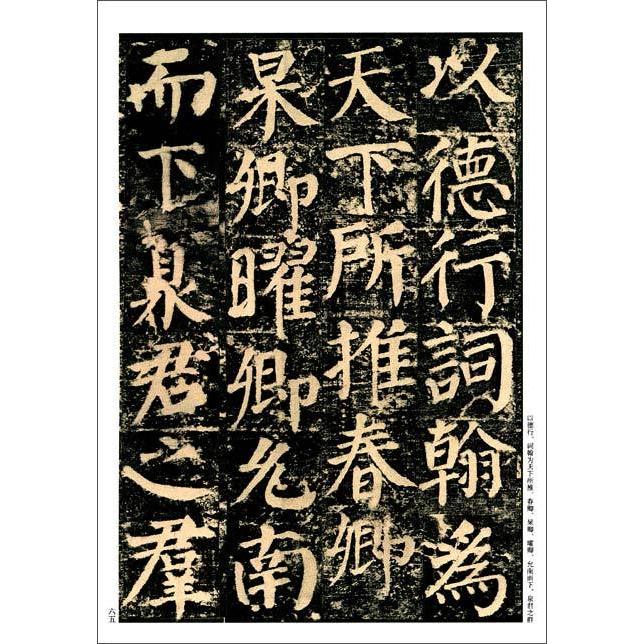 以德行詞翰為
天下所推春卿
杲卿曜卿允南
而下臮君之羣
以德行、词翰为天下所推。春卿、杲卿、曜卿、允南而下，臮君之群
六五